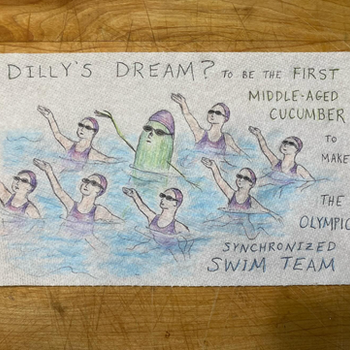 DILLY'S DREAM? TO BE THE FIRST
MIDDLE-AGED
CUCUMBER
TO
MAKE
THE
OLYMPIC
SYNCHRONIZED
SWIM TEAM